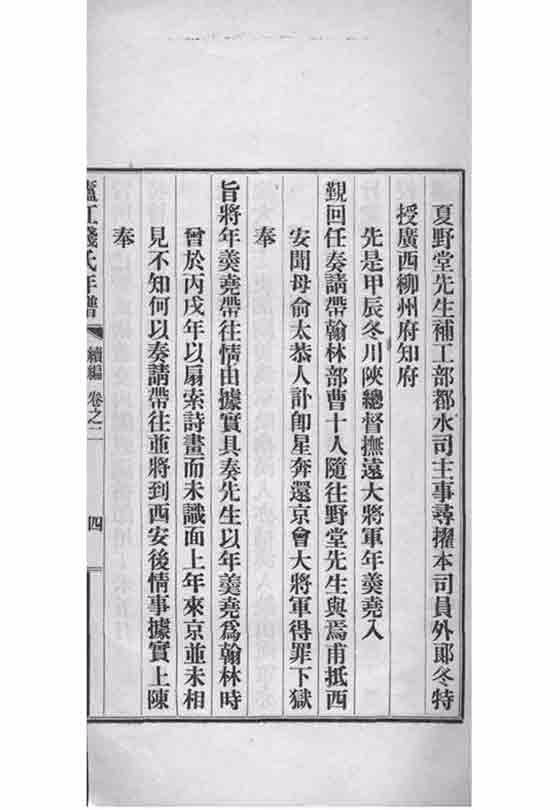 夏野堂先生補工部都水司主事尋擢本司員外郎冬特
授廣西柳州府知府
先是甲辰冬川陝總督撫遠大將軍年羹堯入
覲回任奏請帶翰林部曹十人隨往野堂先生與焉甫抵西
安聞母俞太恭人訃卽星奔還京會大將軍得罪下獄
奉
旨將年羹堯帶往情由據實具奏先生以年羹堯爲翰林時
曾於丙戌年以扇索詩畫而未識面上年來京並未相
見不知何以奏請帶往並將到西安後情事據實上陳
奉
廬江錢氏年譜 續編 卷之二 四